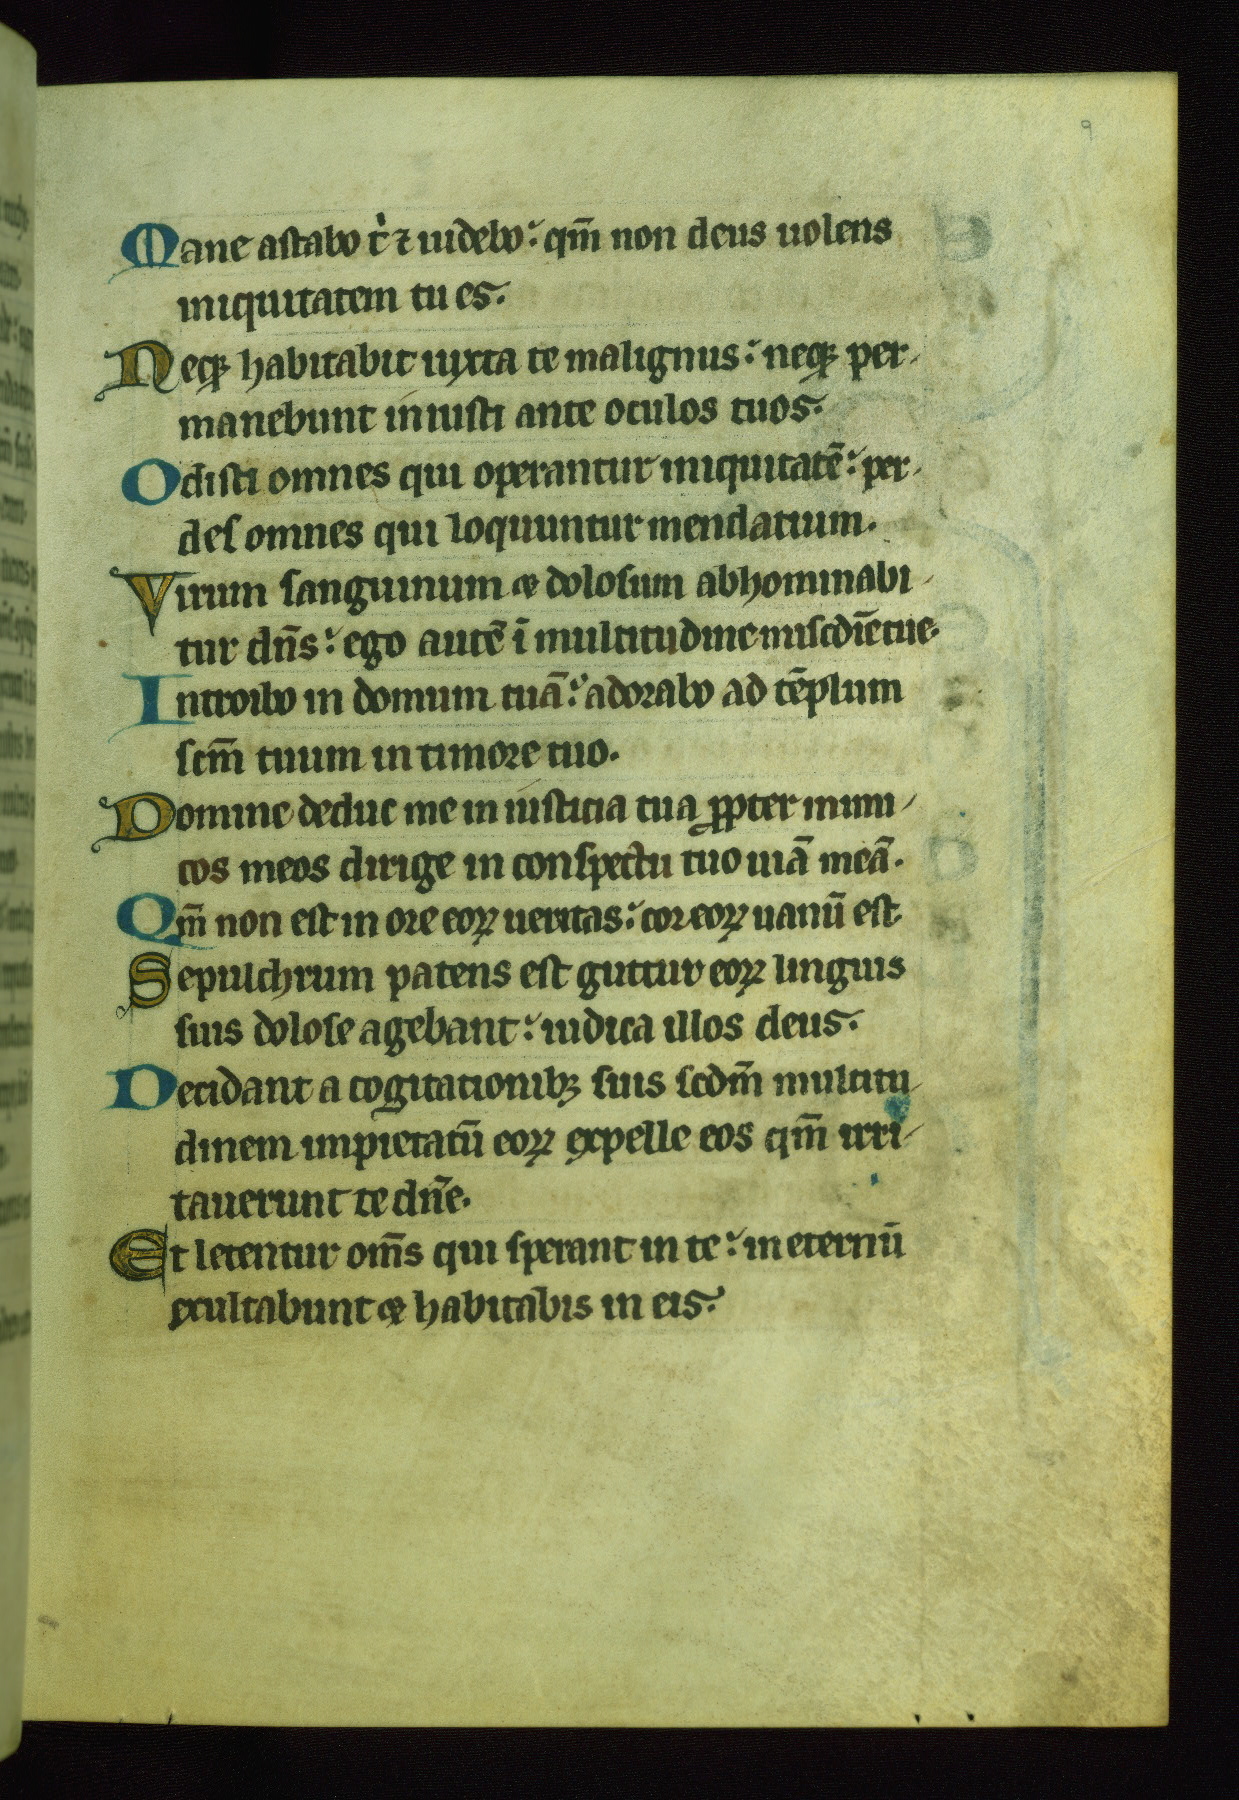 9
Mane astabo t̉ ⁊ uidebo: qm̄ non deus uolens
iniquitatem tu es.
Neqꝫ habitabit iuxta te malignus: neqꝫ per-
manebunt iniusti ante oculos tuos.
Odisti omnes qui operantur iniquitatē: per-
des omnes qui loquuntur mendatium.
Virum sanguinum & dolosum abhominabi-
tur dn̄s: ego autē ī multitudine misc̄dīe tue.
Introibo in domum tuā: adorabo ad tēplum
scm̄ tuum in timore tuo.
Domine deduc me in iusticia tua ꝓpter inimi-
cos meos dirige in conspectu tuo uiā meā.
Qm̄ non est in ore eoꝝ ueritas: cor eoꝝ uanū est
Sepulchrum patens est guttur eoꝝ linguis
suis dolose agebant: iudica illos deus.
Decidant a cogitationibꝫ suis scdm̄ multitu-
dinem impietatū eoꝝ expelle eos qm̄ irri-
tauerunt te dn̄e.
Et letentur om̄s qui sperant in te: in eternū
exultabunt & habitabis in eis.